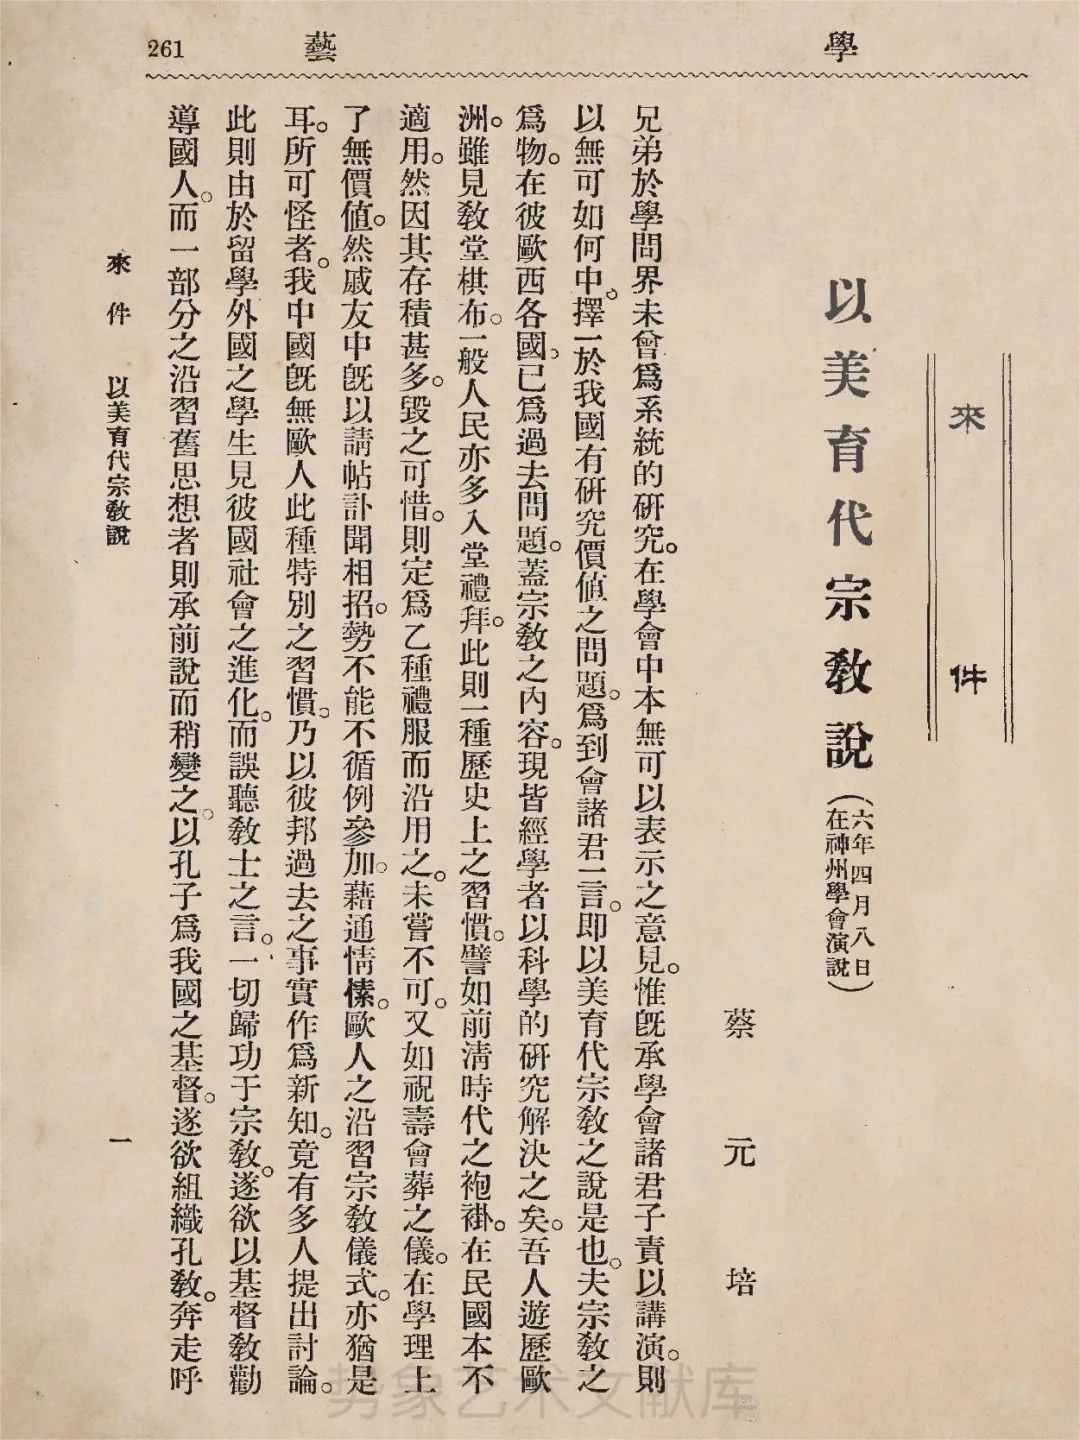 學
藝
261
來件
以美育代宗敎說（六年四月八日在神州學會演說）
蔡元培
兄弟於學問界未曾爲系統的硏究。在學會中本無可以表示之意見。惟旣承學會諸君子責以講演。則
以無可如何中。擇一於我國有硏究價値之問題。爲到會諸君一言。卽以美育代宗敎之說是也。夫宗敎之
爲物。在彼歐西各國。已爲過去問題。蓋宗敎之內容。現皆經學者以科學的硏究解決之矣。吾人遊歷歐
洲。雖見敎堂棋布。一般人民亦多入堂禮拜。此則一種歷史上之習慣。譬如前淸時代之袍褂。在民國本不
適用。然因其存積甚多。毀之可惜。則定爲乙種禮服而沿用之。未嘗不可。又如祝壽會葬之儀。在學理上
了無價値。然戚友中旣以請帖訃聞相招。勢不能不循例參加。藉通情愫。歐人之沿習宗敎儀式。亦猶是
耳。所可怪者。我中國旣無歐人此種特別之習慣。乃以彼邦過去之事實作爲新知。竟有多人提出討論。
此則由於留學外國之學生見彼國社會之進化。而誤聽敎士之言。一切歸功于宗敎。遂欲以基督敎勸
導國人。而一部分之沿習舊思想者則承前說而稍變之。以孔子爲我國之基督。遂欲組織孔敎。奔走呼
來件　以美育代宗敎說
一
勢象艺术文献库